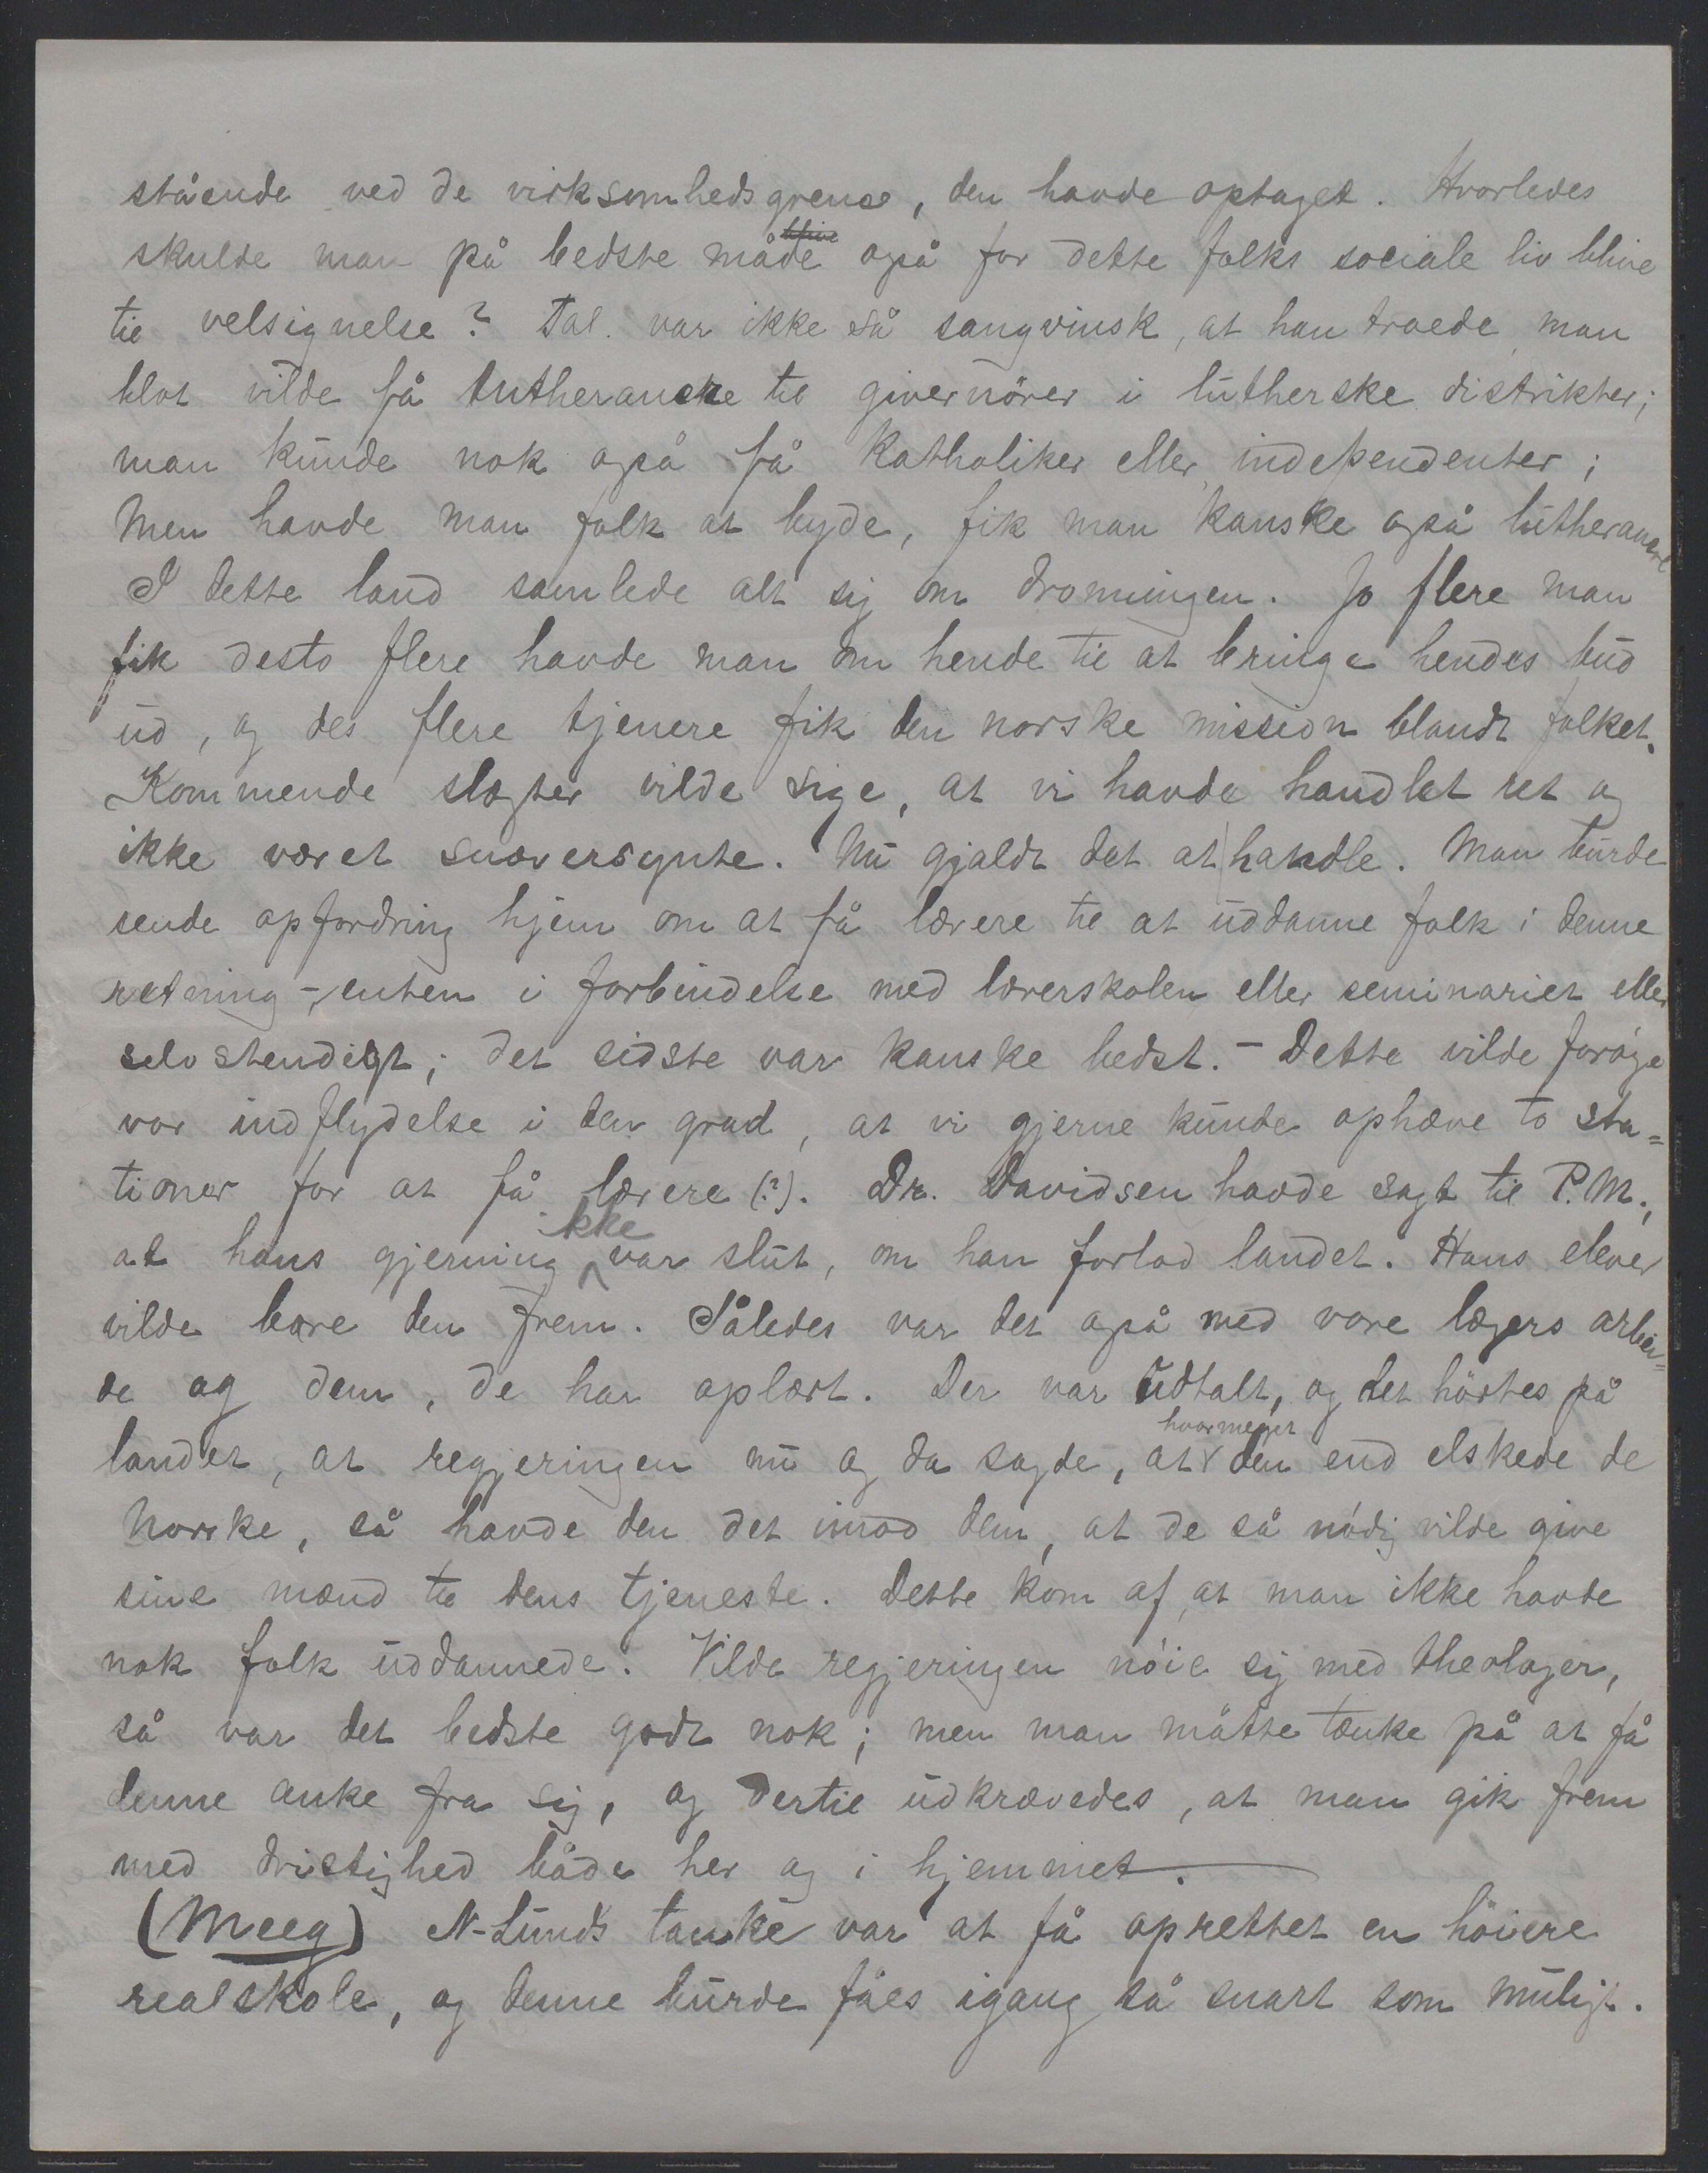 stående ved de virksomhedsgrene, den havde optaget. Hvorledes
skulde man på bedste måde også for dette folks sociale liv blive
til velsignelse? Tal. var ikke så sangvinsk, at han troede, man
blot vilde få lutheranere til guvernörer i lutherske distrikter;
man kunde nok også få katholiker eller independenter;
Men havde man folk at byde, fik man kanske også lutheranere
I dette land samlede alt sig om dronningen. Jo flere man
fik desto flere havde man om hende til at bringe hendes bud
ud, og des flere tjenere fik den norske mission blandt folket.
Kommende slægter vilde sige, at vi havde handlet ret og
ikke været snæversynte. Nu gjaldt det at handle. Man burde
sende opfordring hjem om at få lærere til at uddanne folk i denne
retning -, enten i forbindelse med lærerskolen eller seminariet eller
selvstendigt; det sidste var kanske bedst. - Dette vilde foröge
vor indflydelse i den grad, at vi gjerne kunde ophæve to sta=
tioner for at få lærere (?). Dr. Davidsen havde sagt til P.M.,
at hans gjerning ikke var slut, om han forlod landet. Hans elever
vilde bære den frem. Således var det også med vore lægers arbei=
de og dem, de har oplært. Der var udtalt, og det hörtes på
landet, at regjeringen nu og da sagde, at hvormeget den end elskede de
Norske, så havde den det imod dem, at de så nödig vilde give
sine mænd til dens tjeneste. Dette kom af, at man ikke havde
nok folk uddannede. Vilde regjeringen nöie sig med theologer,
så var det bedste godt nok; men man måtte tænke på at få
denne anke fra sig, og dertil udkrævedes, at man gik frem
med dristighed både her og i hjemmet.
(Meeg) N-Lunds tanke var at få oprettet en höiere
realskole, og denne burde fåes igang så snart som muligt.